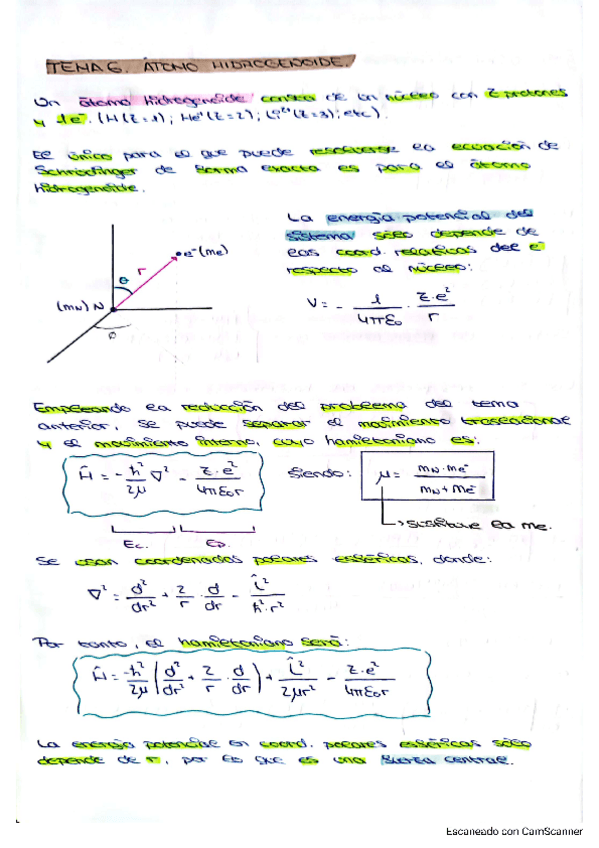 TEMA 6. ÁTOMO HIDROGENOIDE.
Un átomo hidrogenoide consta de un núcleo con Z protones
y 1e⁻. (H(Z=1); He⁺(Z=2); Li²⁺(Z=3); etc).
El único para el que puede resolverse la ecuación de
Schrödinger de forma exacta es para el átomo
hidrogenoide.
La energía potencial del
sistema sólo depende de
las coord. relativas del e⁻
respecto al núcleo:
e⁻(me)
r
θ
(mN) N
φ
V = - 1/4πε₀ · Z·e²/r
Empleando la reducción del problema del tema
anterior, se puede separar el movimiento traslacional
y el movimiento interno, cuyo hamiltoniano es:
Ĥ = - ħ²/2μ ∇² - Z·e²/4πε₀r siendo: μ = mN·me⁻/mN+me⁻
Ec. Ep. ↳ sustituye la me.
Se usan coordenadas polares esféricas, donde:
∇² = d²/dr² + 2/r · d/dr - L̂²/ħ²·r²
Por tanto, el hamiltoniano será:
Ĥ = -ħ²/2μ (d²/dr² + 2/r · d/dr) + L̂²/2μr² - Z·e²/4πε₀r
La energía potencial en coord. polares esféricas sólo
depende de r, por lo que es una fuerza central.
Escaneado con CamScanner